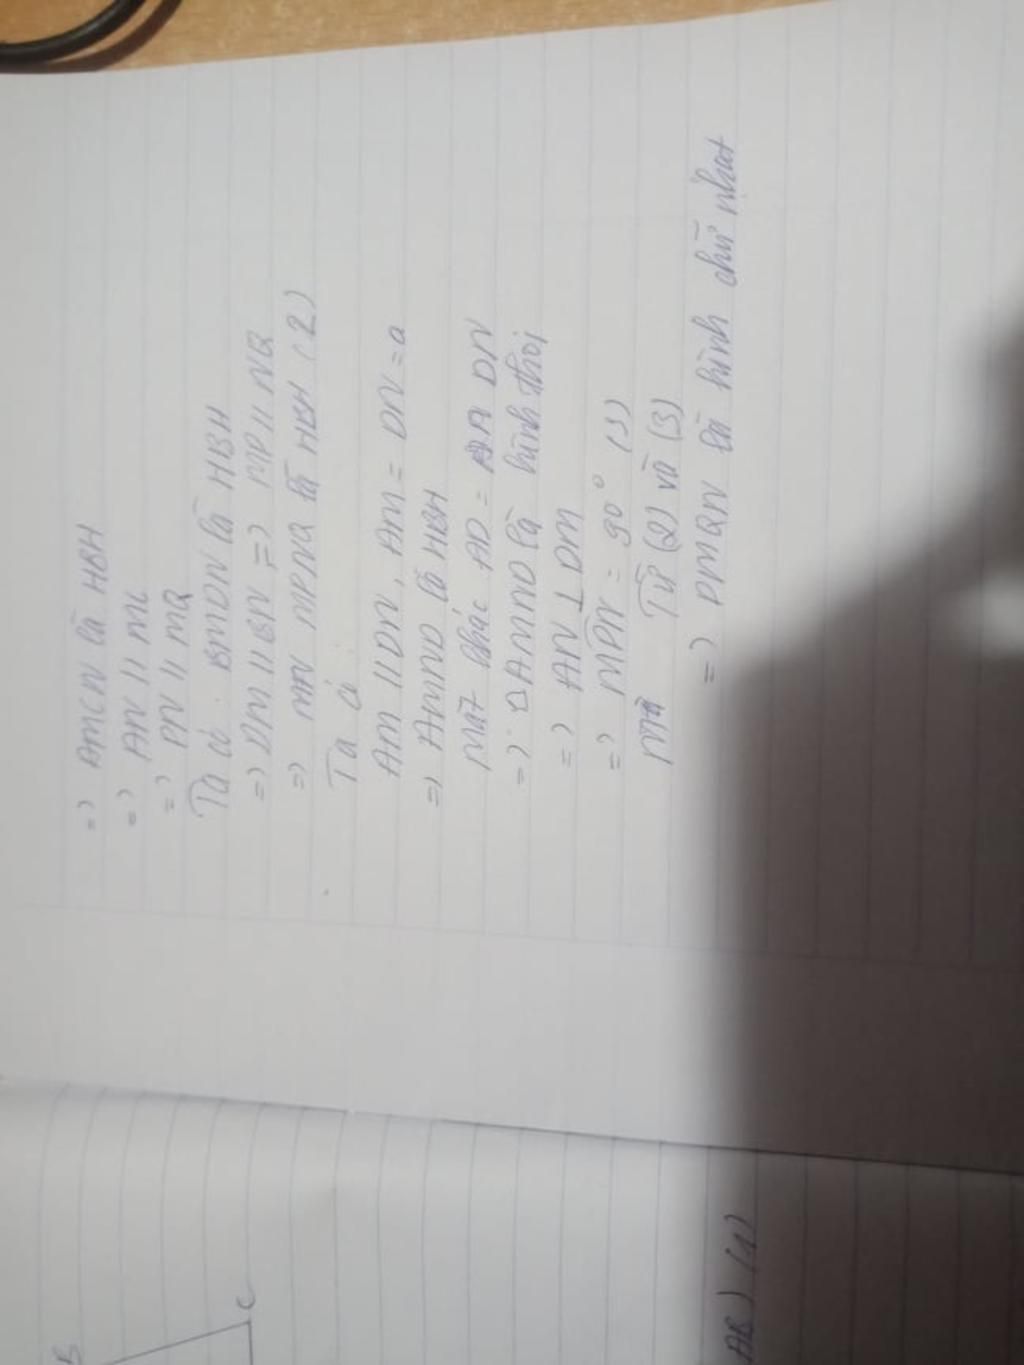 => AMCN là HBH
=> AN // MC
=> PN // MQ
Ta có: BMDN là HBH
=> DM // BN => MP // NQ
=> MPNQ là HBH (2)
Ta có
AM // DN, AM = DN = a
=> AMND là HBH
Mặt khác AD = DN
=> AMND là hình thoi
=> AN ⊥ DM
=> MPN = 90° (3)
Từ (2) và (3)
=> PMQN là hình chữ nhật
B
C
AB) (1)